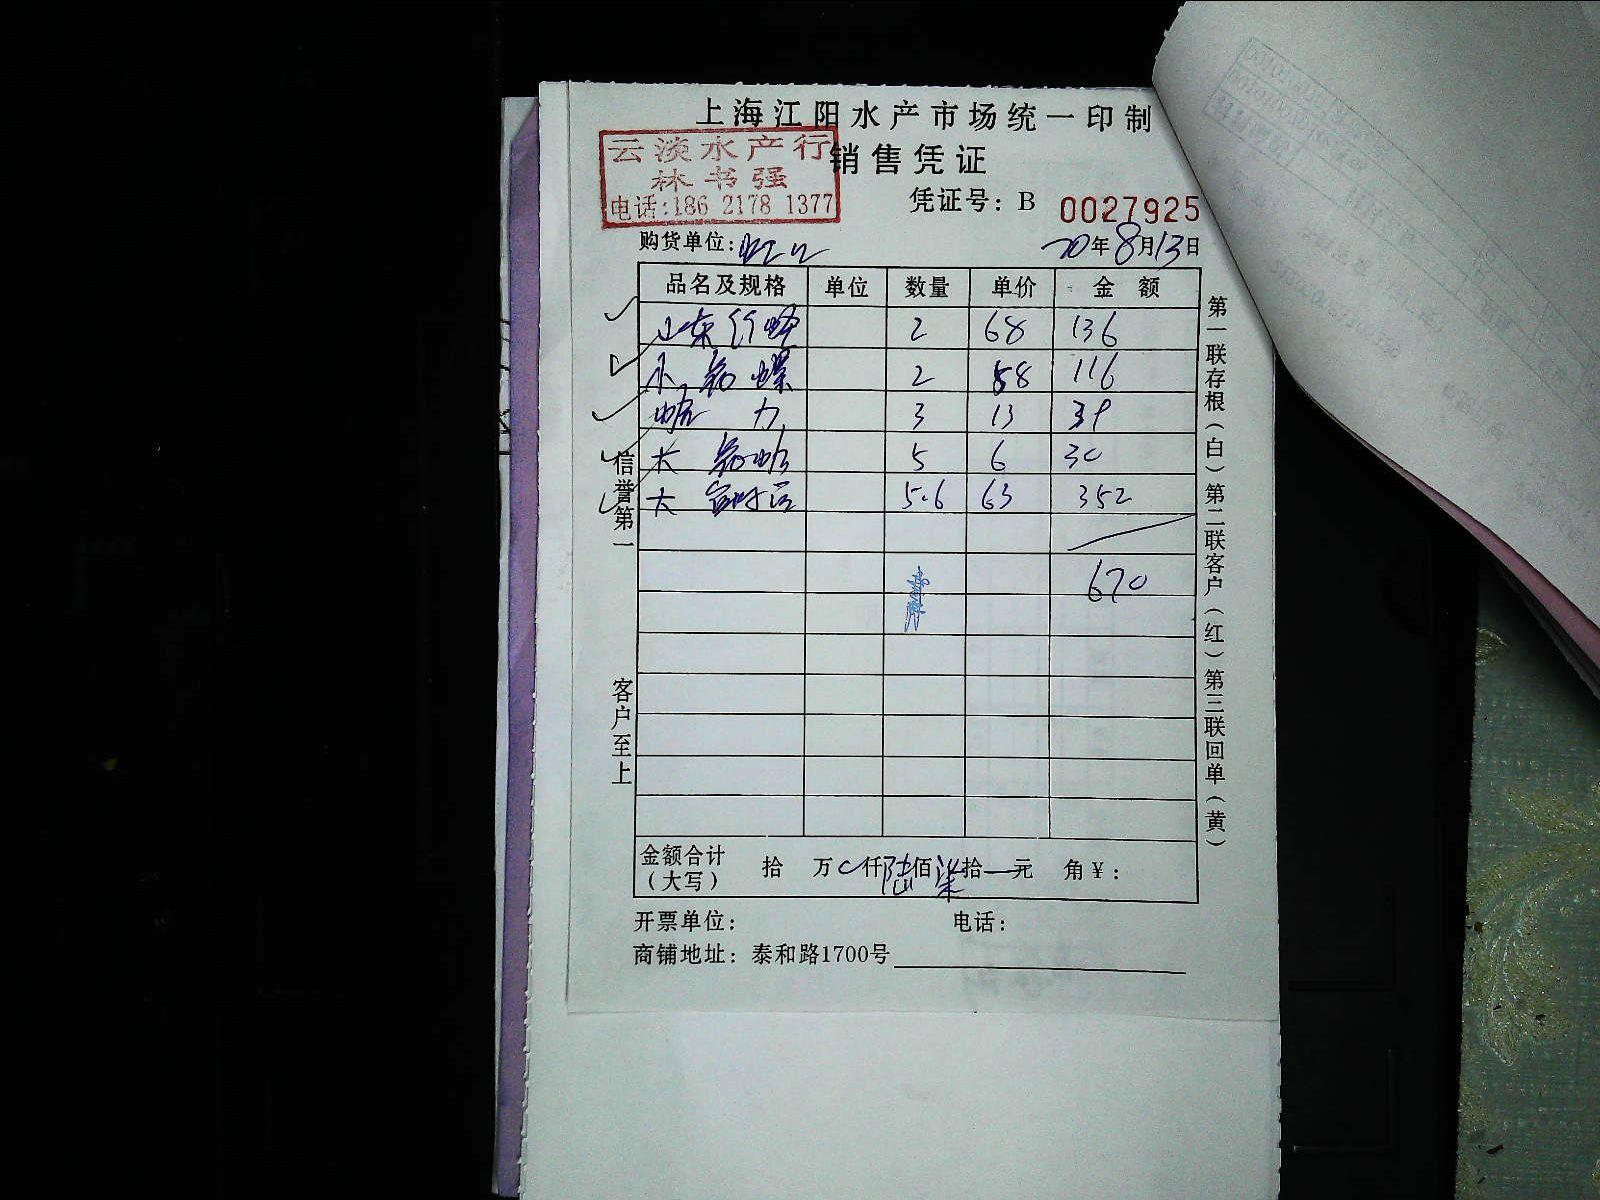 上海江阳水产市场统一印制
云淡水产行
林书强
电话:186 2178 1377
销售凭证
凭证号: B 0027925
购货单位:
20年8月13日
品名及规格 单位 数量 单价 金 额
山东竹蛏 2 68 136
小 2 58 116
蛤 力 3 13 39
大 5 6 30
大 5.6 63 352
670
金额合计(大写) 拾 万 0 仟陆佰柒拾一元 角¥:
开票单位: 电话:
商铺地址: 泰和路1700号
信誉第一
客户至上
第一联存根(白)第二联客户(红)第三联回单(黄)